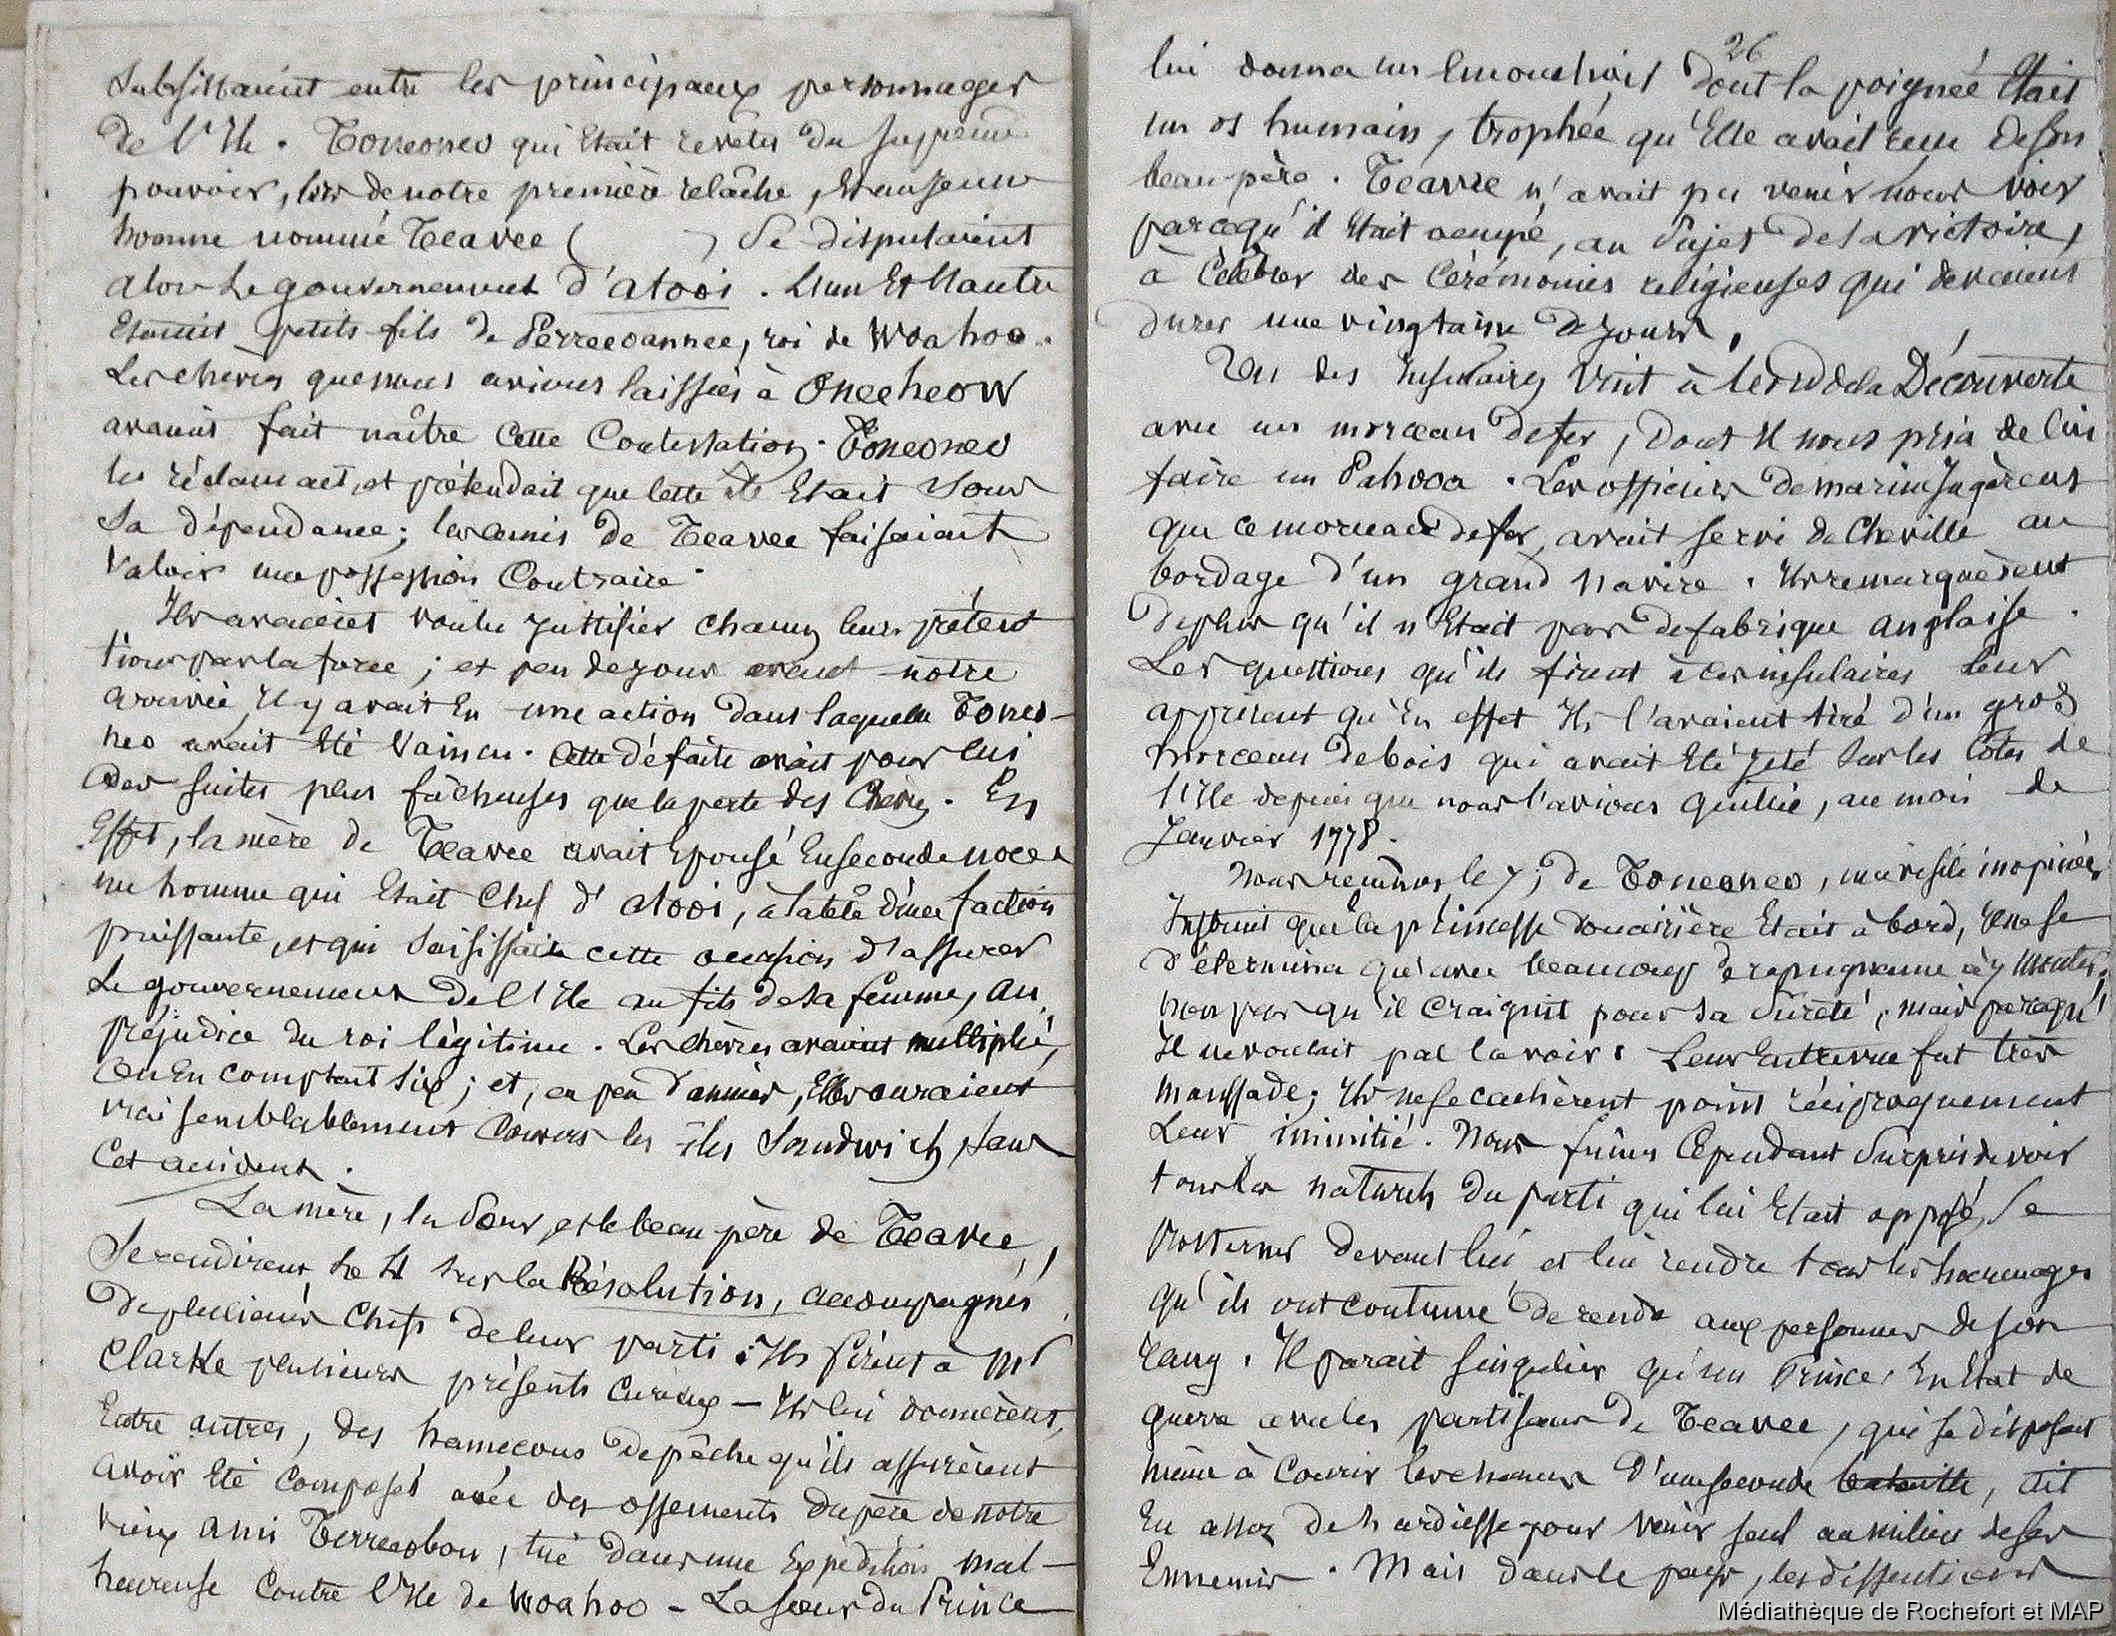 subsistaient entre les principaux personnages
de l'Ile. Toneoneo qui Etait revêtu du suprême
pouvoir, lors de notre première relâche, Et un jeune
homme nommé Teavee ( ) Se disputaient
alors Le gouvernement d'atooi. L'un Et l'autre
Etaient petits fils de Perreeoannee, roi de Woahoo.
Les chèvres que nous avions laissées à Oneeheow
avaient fait naître Cette Contestation. Toneoneo
les réclamait, et prétendait que Cette île Etait Sous
Sa dépendance; les amis de Teavee faisaient
Valoir une possession Contraire.
Ils avaient voulu justifier chacun leurs préten
tions par la force; et peu de jours avant notre
arrivée, Il y avait Eu une action dans laquelle Toneo-
neo avait Eté Vaincu. Cette défaite avait pour lui
des suites plus fâcheuses que la perte des Chèvres. En
Effet, la mère de Teavee avait Epousé En seconde noces
un homme qui Etait Chef d'atooi, à la tête d'une faction
puissante, et qui saisissait cette occasion d'assurer
Le gouvernement de l'Ile au fils de sa femme, au
préjudice du roi légitime. Les Chèvres avaient multiplié,
on En comptait Six; et, en peu d'années, Elles auraient
vraisemblablement Couvert les îles Sandwich, sans
Cet accident.
La mère, la Soeur, et le beau père de Teavee,
Se rendirent, Le 4 sur la Résolution, accompagnés
de plusieurs Chefs de leur parti. Ils firent à Mr
Clarke plusieurs présents Curieux – Ils lui donnèrent,
Entre autres, des hameçons de pêche qu'ils assurèrent
avoir Eté Composés avec des ossements du père de notre
vieux ami Terreeoboo, tué dans une Expédition mal-
heureuse Contre l'Ile de Woahoo – La soeur du Prince
26
lui donna un Emouchoir dont la poignée Etait
un os humain, trophée qu'Elle avait reçu de son
beau père. Teavee n'avait pu venir nous voir
parcequ'il Etait occupé, au Sujet de sa victoire,
à Célébrer des Cérémonies religieuses qui devaient
durer une vingtaine de jours.
Un des Insulaires Vint à bord de la Découverte
avec un morceau de fer, dont Il nous pria de lui
faire un Pahooa. Les officiers de marine Jugèrent
que ce morceau de fer, avait servi de Cheville au
bordage d'un grand Navire. Ils remarquèrent
de plus qu'il n'Etait pas de fabrique anglaise.
Les questions qu'ils firent à ces insulaires leur
apprirent qu'En effet Ils l'avaient tiré d'un gros
morceau de bois qui avait Eté Jeté Sur les Côtes de
l'Ile depuis que nous l'avions quittée, au mois de
Janvier 1778.
Nous reçûmes le 7; de Toneoneo, une visite inopinée
Instruit que la princesse douairière Etait à bord, Il ne se
détermina qu'avec beaucoup de répugnance à y monter,
non pas qu'il craignit pour sa Sureté, mais parcequ'
Il ne voulait pas la voir. Leur Entrevue fut très
maussade; Ils ne se cachèrent point réciproquement
Leur inimitié. Nous fûmes Cependant Surpris de voir
tous les naturels du parti qui lui Etait opposé, Se
prosterner devant lui et lui rendre tous les hommages
qu'ils ont coutume de rendre aux personnes de son
rang. Il parait Singulier qu'un Prince, En Etat de
guerre avec les partisans de Teavee, qui se disposait
même à Courir les chances d'une seconde bataille, ait
Eu assez de hardiesse pour Venir seul au milieu de ses
Ennemis. Mais dans le pays, les dissentions
Médiathèque de Rochefort et MAP